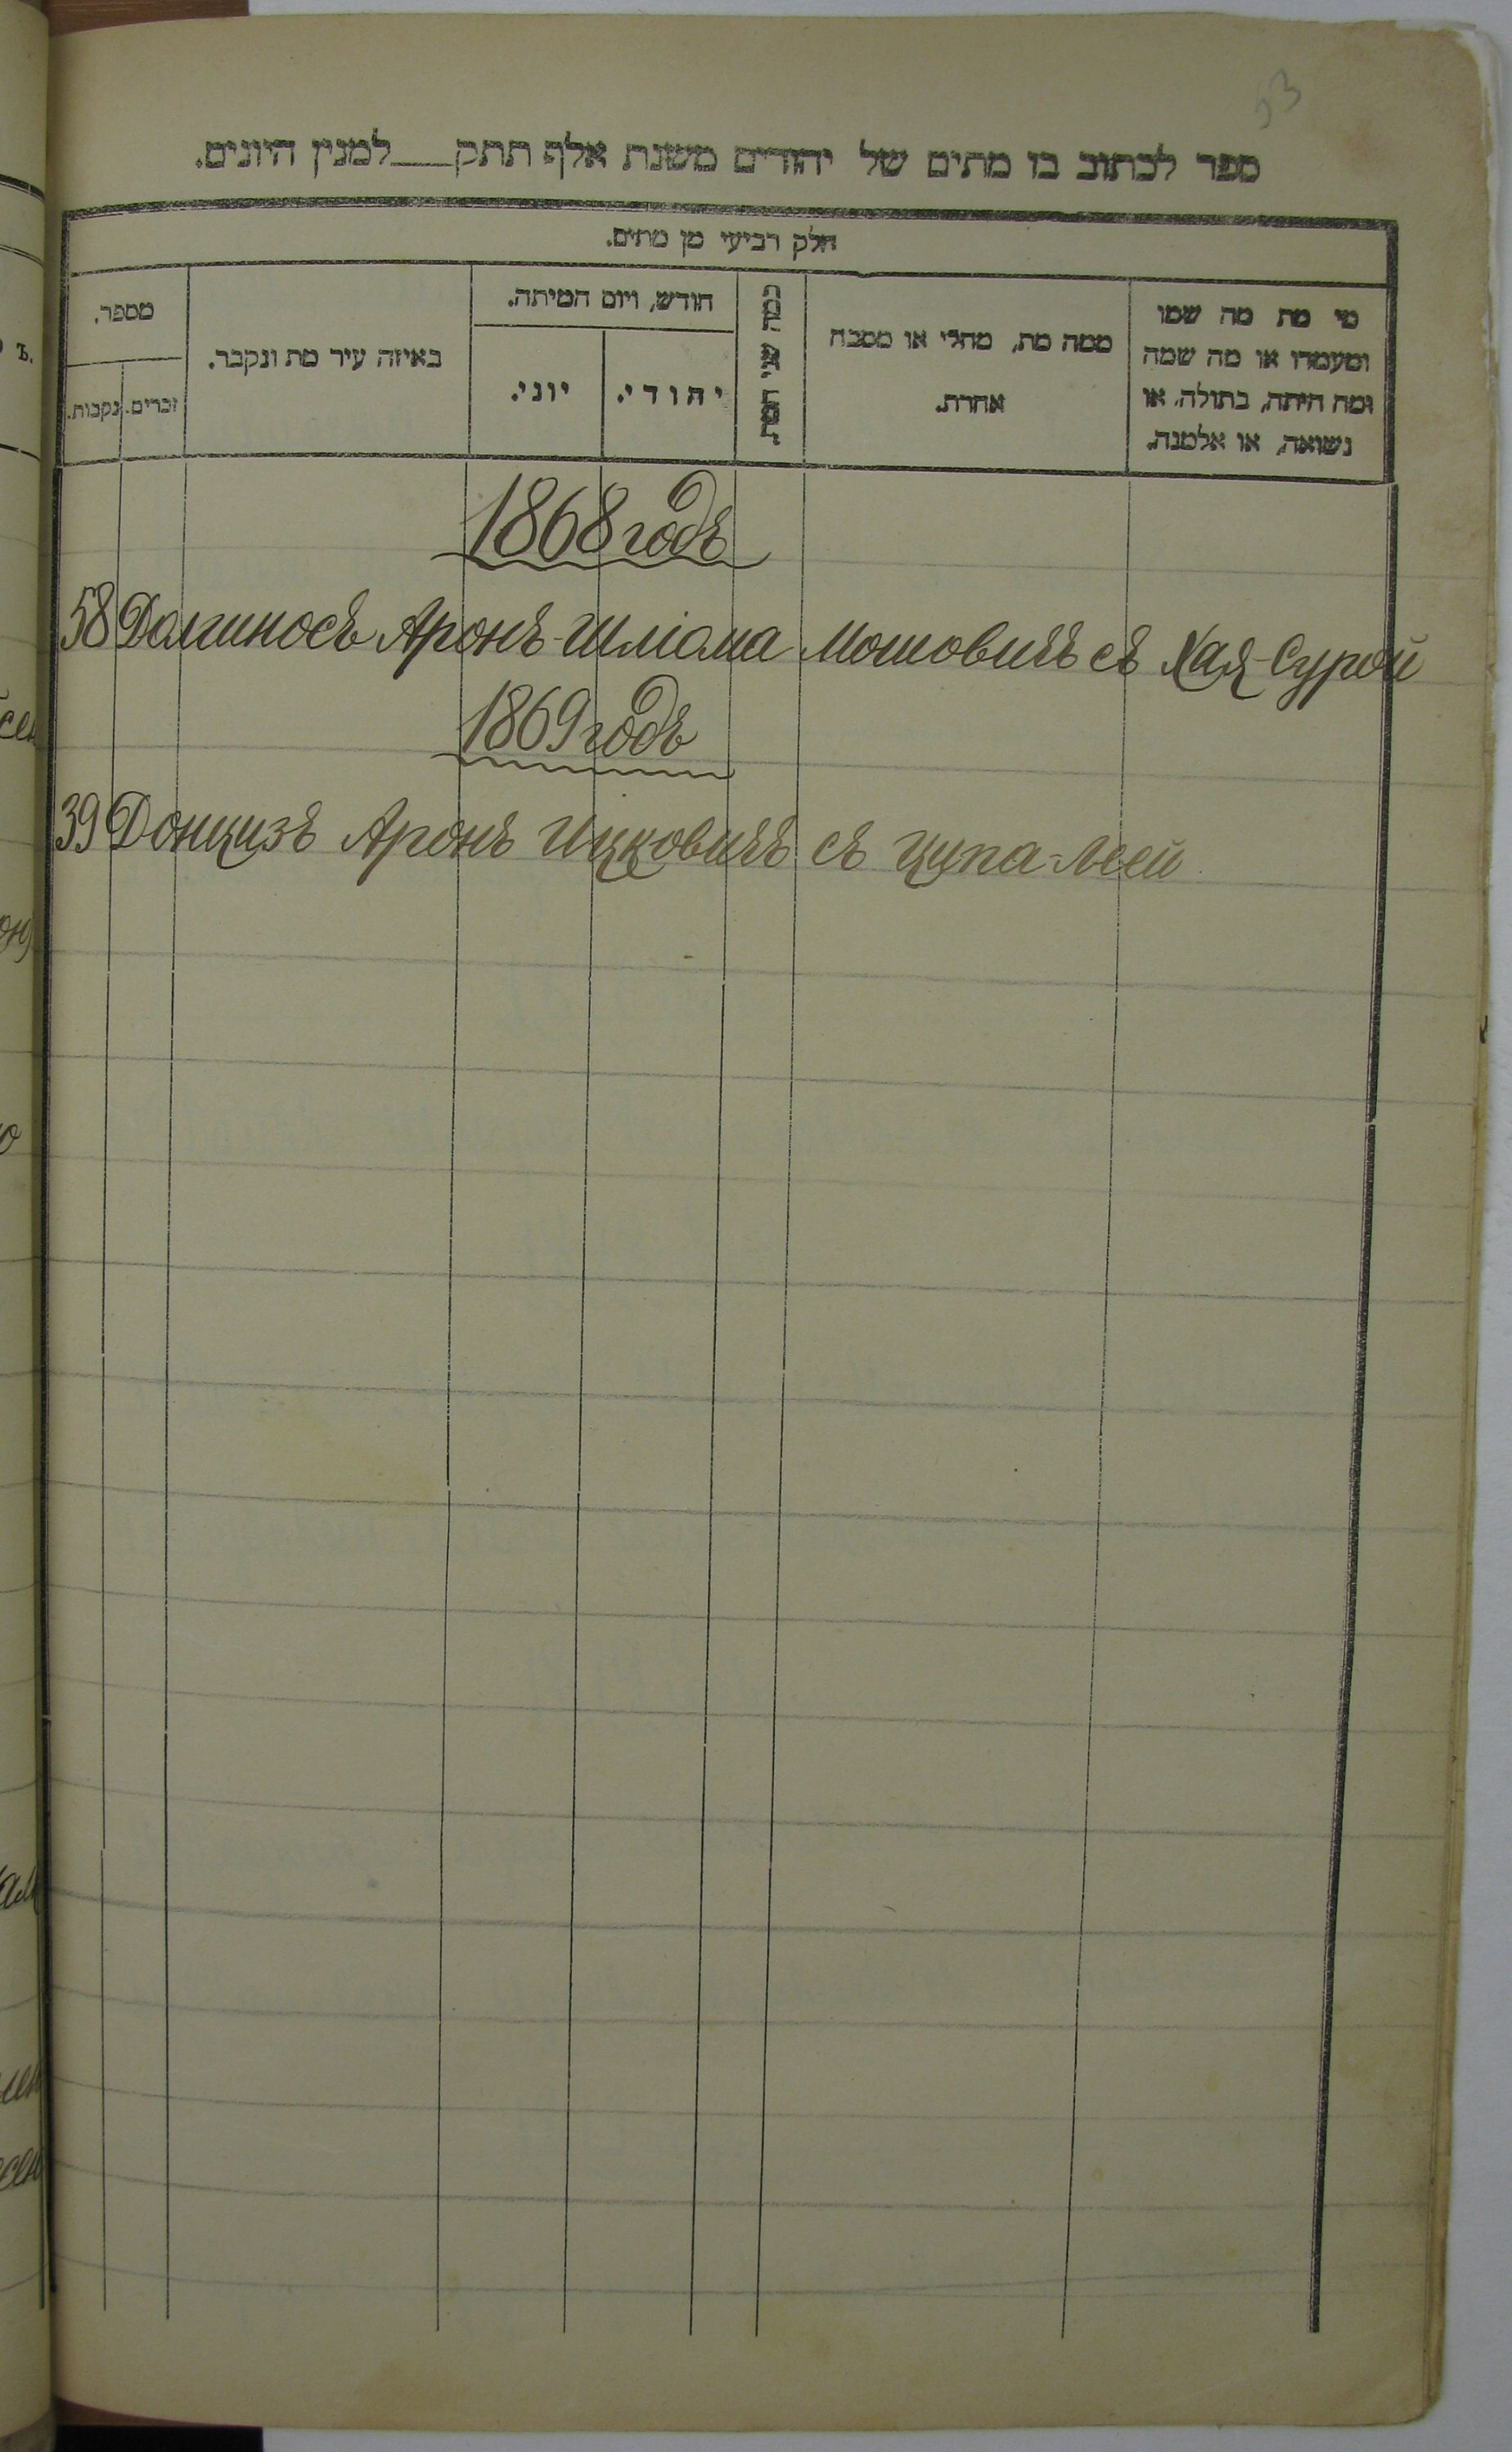 53
ספר לכתוב בו מתים של יהודים משנת אלף תתק___למנין היונים.
חלק רביעי מן מתים.
מספר.
נקבות.
זכרים.
באיזה עיר מת ונקבר.
חודש, ויום המיתה.
יוני.
יהודי.
כמה שני המת.
ממה מת, מחלי או מסבה
אחרת.
מי מת מה שמו
ומעמדו או מה שמה
ומה היתה, בתולה, או
נשואה, או אלמנה.
1868 годъ
58 Долгиносъ Аронъ-Шліома Мошовичъ съ Хая-Сурой
1869 годъ
39 Донцизъ Аронъ Ицковичъ съ Ципа-Леей